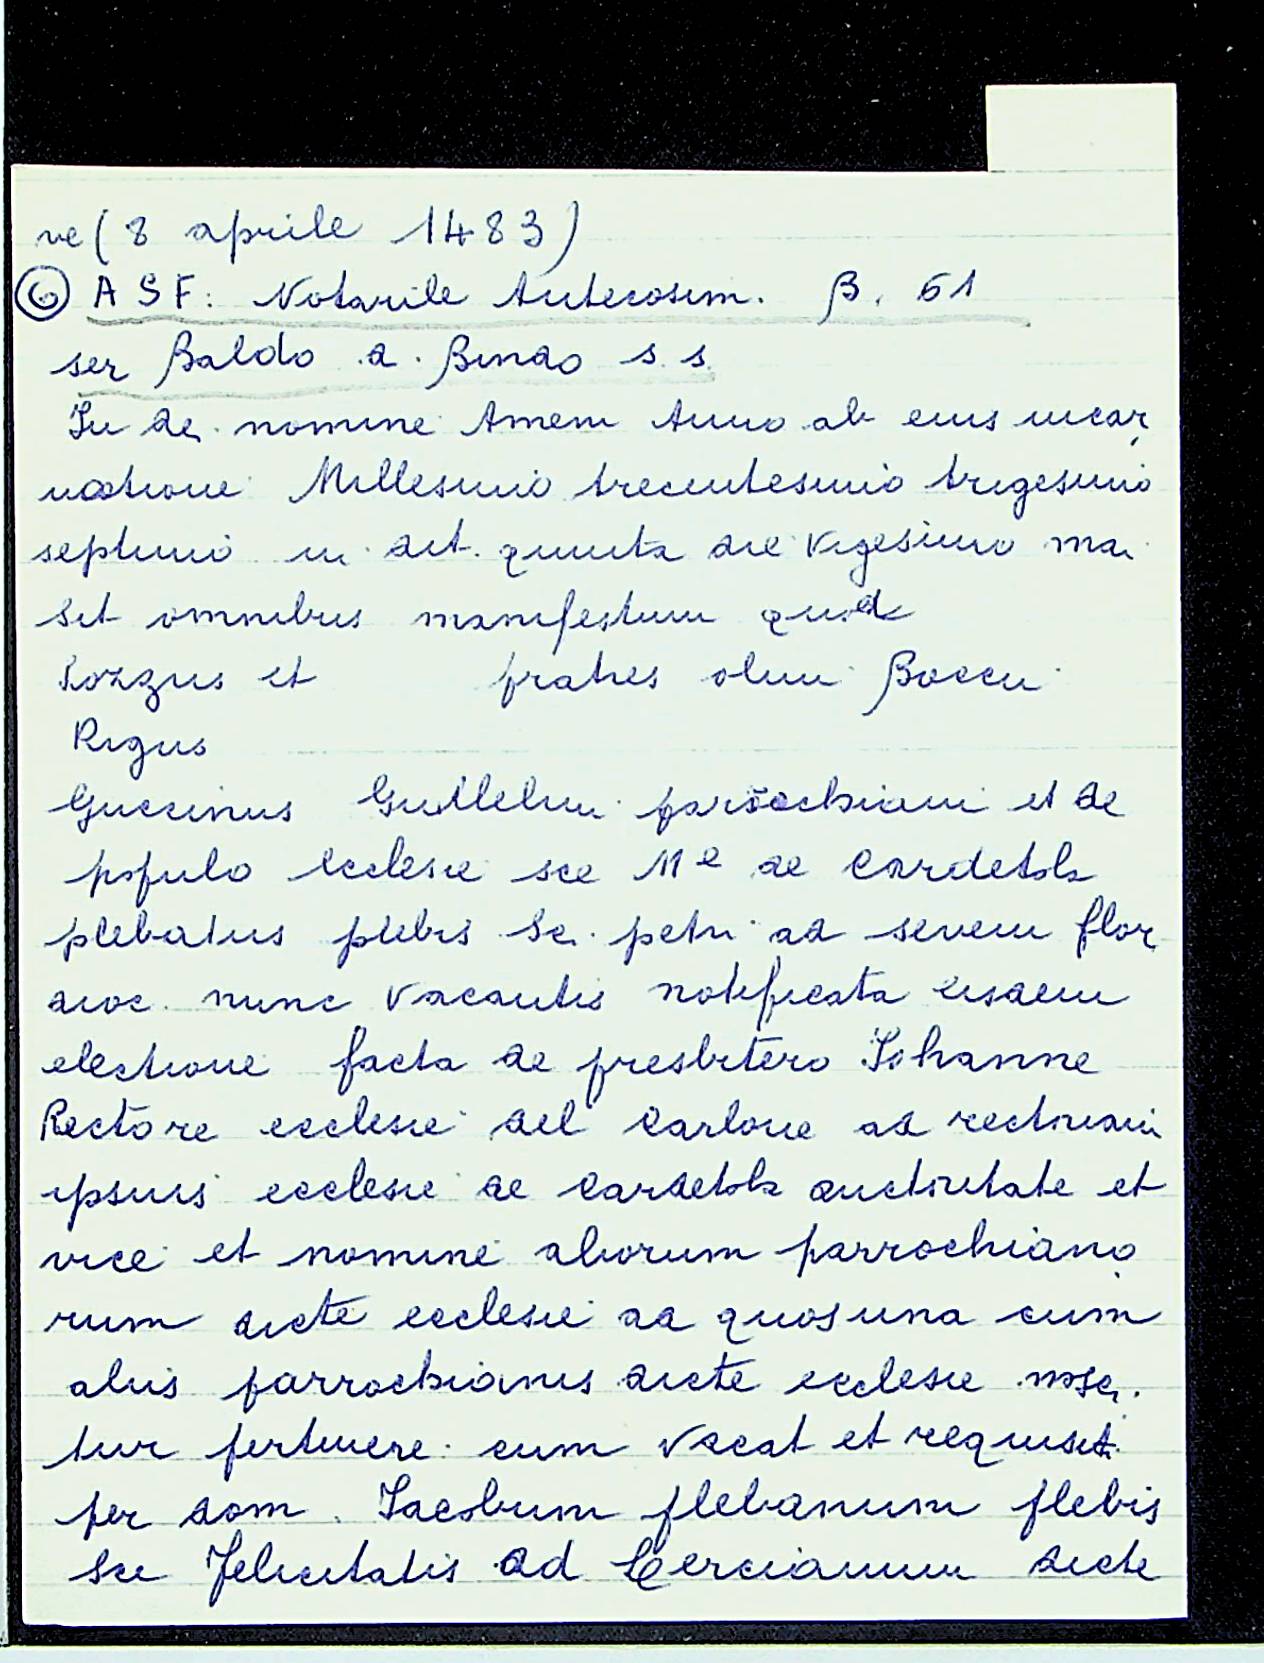 ve (8 aprile 1483)
⑥ ASF: Notarile Antecosim. B. 61
ser Baldo a. Bindo s. s.
In dei nomine Amen Anno ab eius incar
natione Millesimo trecentesimo trigesimo
septimo in dit. quinta die vigesimo ma
Sit omnibus manifestum quod
Rozzus et fratres olim Boccii
Rigus
Guccinus Gullelmi parrochiani et de
popfulo ecclesie sce Me de Cardetola
plebatus plebis Sci petri ad sevem flor
dioc. nunc vacantis notificata eisdem
electione facta de presbitero Iohanne
Rectore ecclesie del Carlone ad rectoriam
ipsius ecclesie de Cardetola auctoritate et
vice et nomine aliorum parrochiano
rum dicte ecclesie ad quos una cum
aliis parrochianis dicte ecclesie nosci
tur pertinere cum vacat et requisit.
per dom. Iacobum plebanum plebis
Sce Felicitatis ad Lercianum dicte